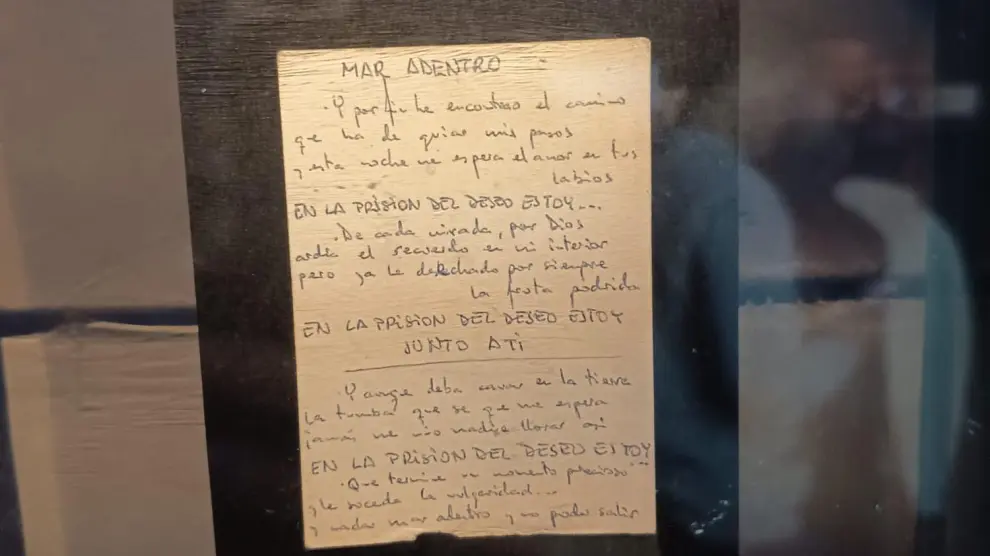 MAR ADENTRO
·Y por fin he encontrao el camino
que ha de guiar mis pasos
y esta noche me espera el amor en tus
labios
EN LA PRISION DEL DESEO ESTOY...
·De cada mirada, por Dios
ardía el recuerdo en mi interior
pero ya he desechado por siempre
la fruta podrida
EN LA PRISION DEL DESEO ESTOY
JUNTO A TI
·Y aunque deba cavar en la tierra
la tumba que se que me espera
jamás me vio nadie llorar así
EN LA PRISION DEL DESEO ESTOY...
·Que termine un momento precioso
y le suceda la vulgaridad...
y nadar mar adentro y no poder salir